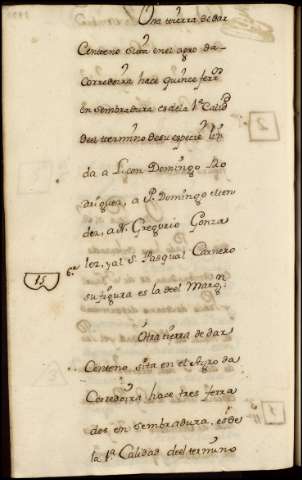 Una tierra de dar
Centeno sita en el agro da
corredoira hace quince ferrs
en sembradura es de la 1ª Calid
del termino de su especie lin
da a L. con Domingo Ro
driguez, a P. Domingo el ten
der, a N. Gregorio Gonza
lez, y al S. Pasqual Carnero
su figura es la del Margn
15
6ª
Otra tierra de dar
Centeno sita en el Agro da
Corredoira hace tres ferra
dos en sembradura, es de
la 1ª Calidad del termino
2
1